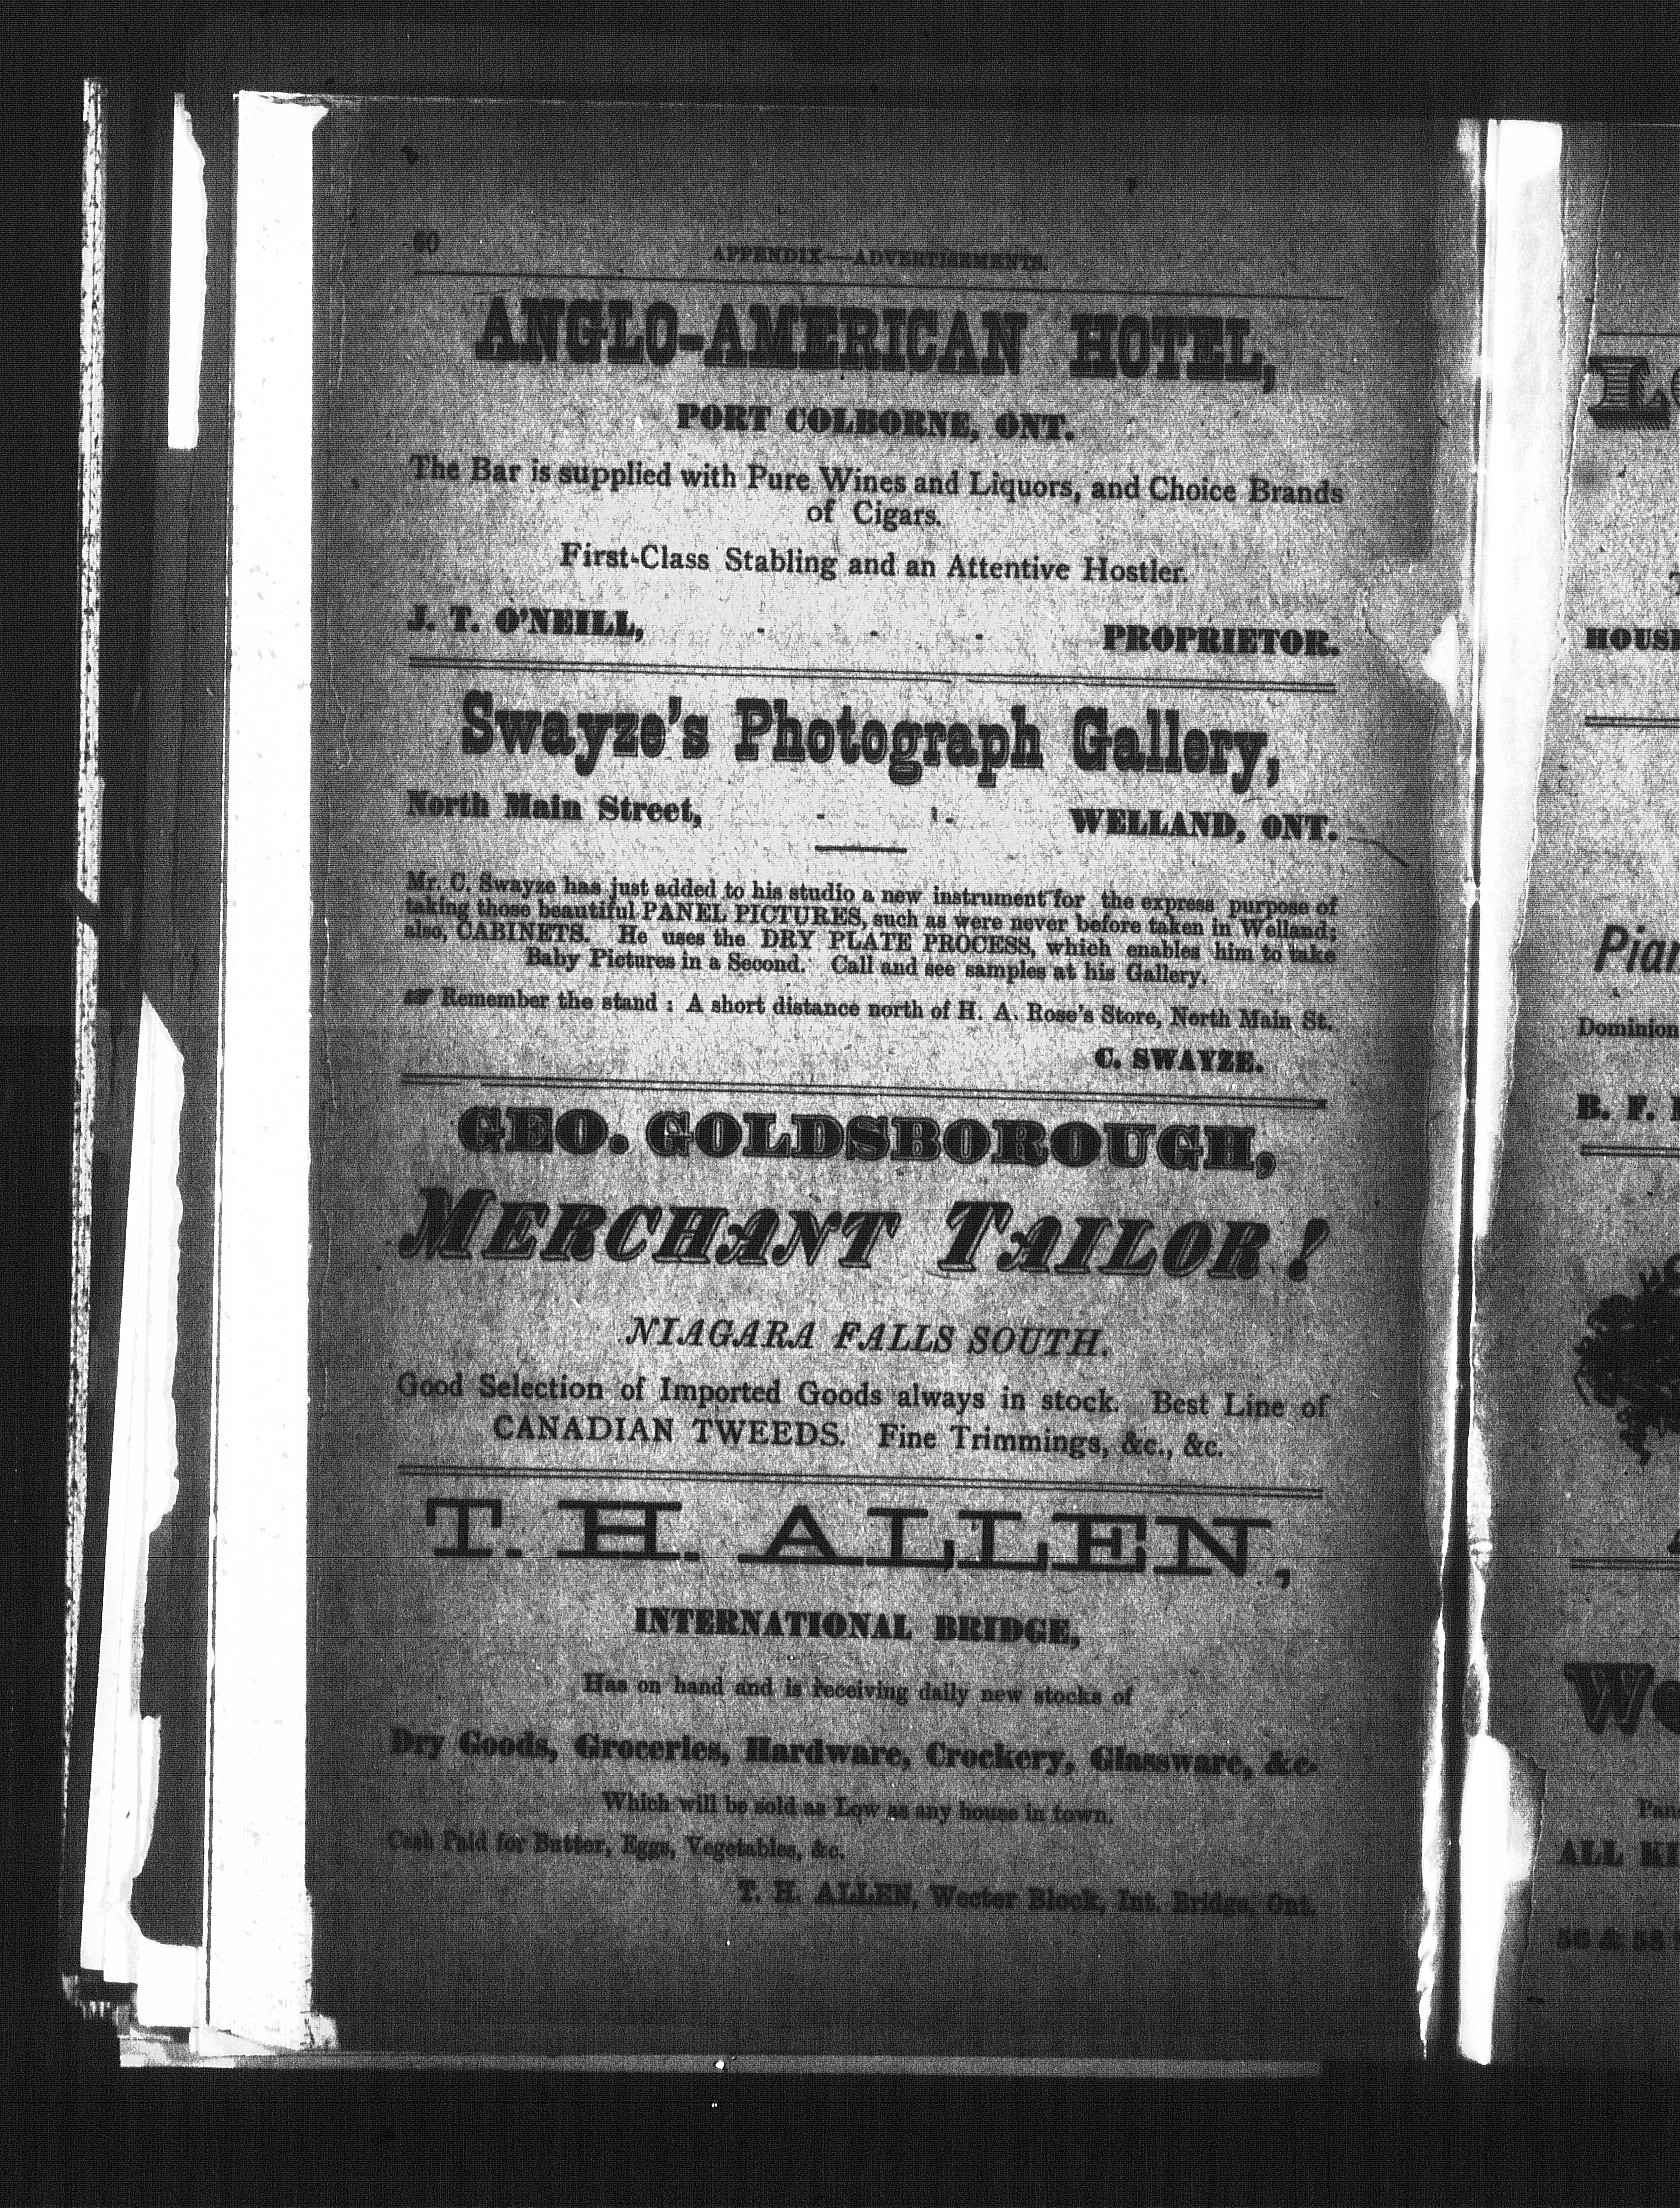 60
APPENDIX—ADVERTISEMENTS.
ANGLO-AMERICAN HOTEL,
PORT COLBORNE, ONT.
The Bar is supplied with Pure Wines and Liquors, and Choice Brands
of Cigars.
First-Class Stabling and an Attentive Hostler.
J. T. O'NEILL, - - - PROPRIETOR.
Swayze's Photograph Gallery,
North Main Street, - - WELLAND, ONT.
Mr. C. Swayze has just added to his studio a new instrument for the express purpose of
taking those beautiful PANEL PICTURES, such as were never before taken in Welland;
also, CABINETS. He uses the DRY PLATE PROCESS, which enables him to take
Baby Pictures in a Second. Call and see samples at his Gallery.
☞ Remember the stand : A short distance north of H. A. Rose's Store, North Main St.
C. SWAYZE.
GEO. GOLDSBOROUGH,
MERCHANT TAILOR !
NIAGARA FALLS SOUTH.
Good Selection of Imported Goods always in stock. Best Line of
CANADIAN TWEEDS. Fine Trimmings, &c., &c.
T. H. ALLEN,
INTERNATIONAL BRIDGE,
Has on hand and is receiving daily new stocks of
Dry Goods, Groceries, Hardware, Crockery, Glassware, &c.
Which will be sold as Low as any house in town.
Cash Paid for Butter, Eggs, Vegetables, &c.
T. H. ALLEN, Wecter Block, Int. Bridge, Ont.
HOUS
Dominion
B. F.
ALL KI
56 & 58